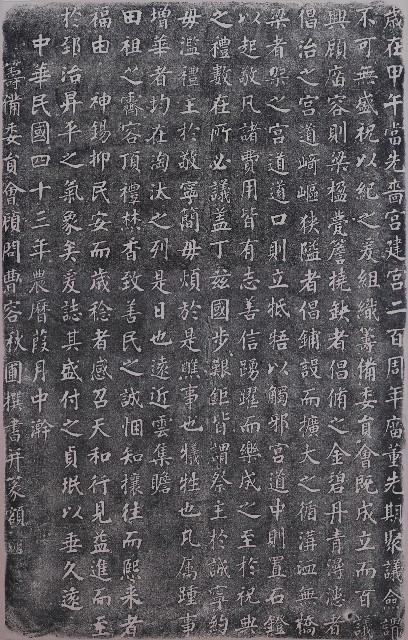 歲在甲午當先嗇宮建宮二百周年廟董先期聚議僉謂
不可無盛祝以紀之爰組織籌備委員會既成立而百
興顧廟容則梁楹甍簷撓缺者倡脩之金碧丹青漫漶者
倡治之宮道崎嶇狹隘者倡鋪設而擴大之循溝洫無橋
梁者架之宮道道口則立牴牾以觸邪宮道中則置石鐙
以起敬凡諸費用皆有志善信踴躍而樂成之至於祝典
之禮數在所必議蓋丁茲國步艱鉅皆謂祭主於誠寧約
毋濫禮主於敬寧簡毋煩於是醮事也犧牲也凡属踵事
增華者均在淘汰之列是日也遠近雲集瞻
田祖之霽容頂禮焚香致善民之誠悃知攘往而熙來者
福由 神錫抑民安而歲稔者感召天和行見益進而至
於郅治昇平之氣象矣爰誌其盛付之貞珉以垂久遠
中華民國四十三年農曆葭月中澣
籌備委員會顧問曹容秋圃撰書并篆額